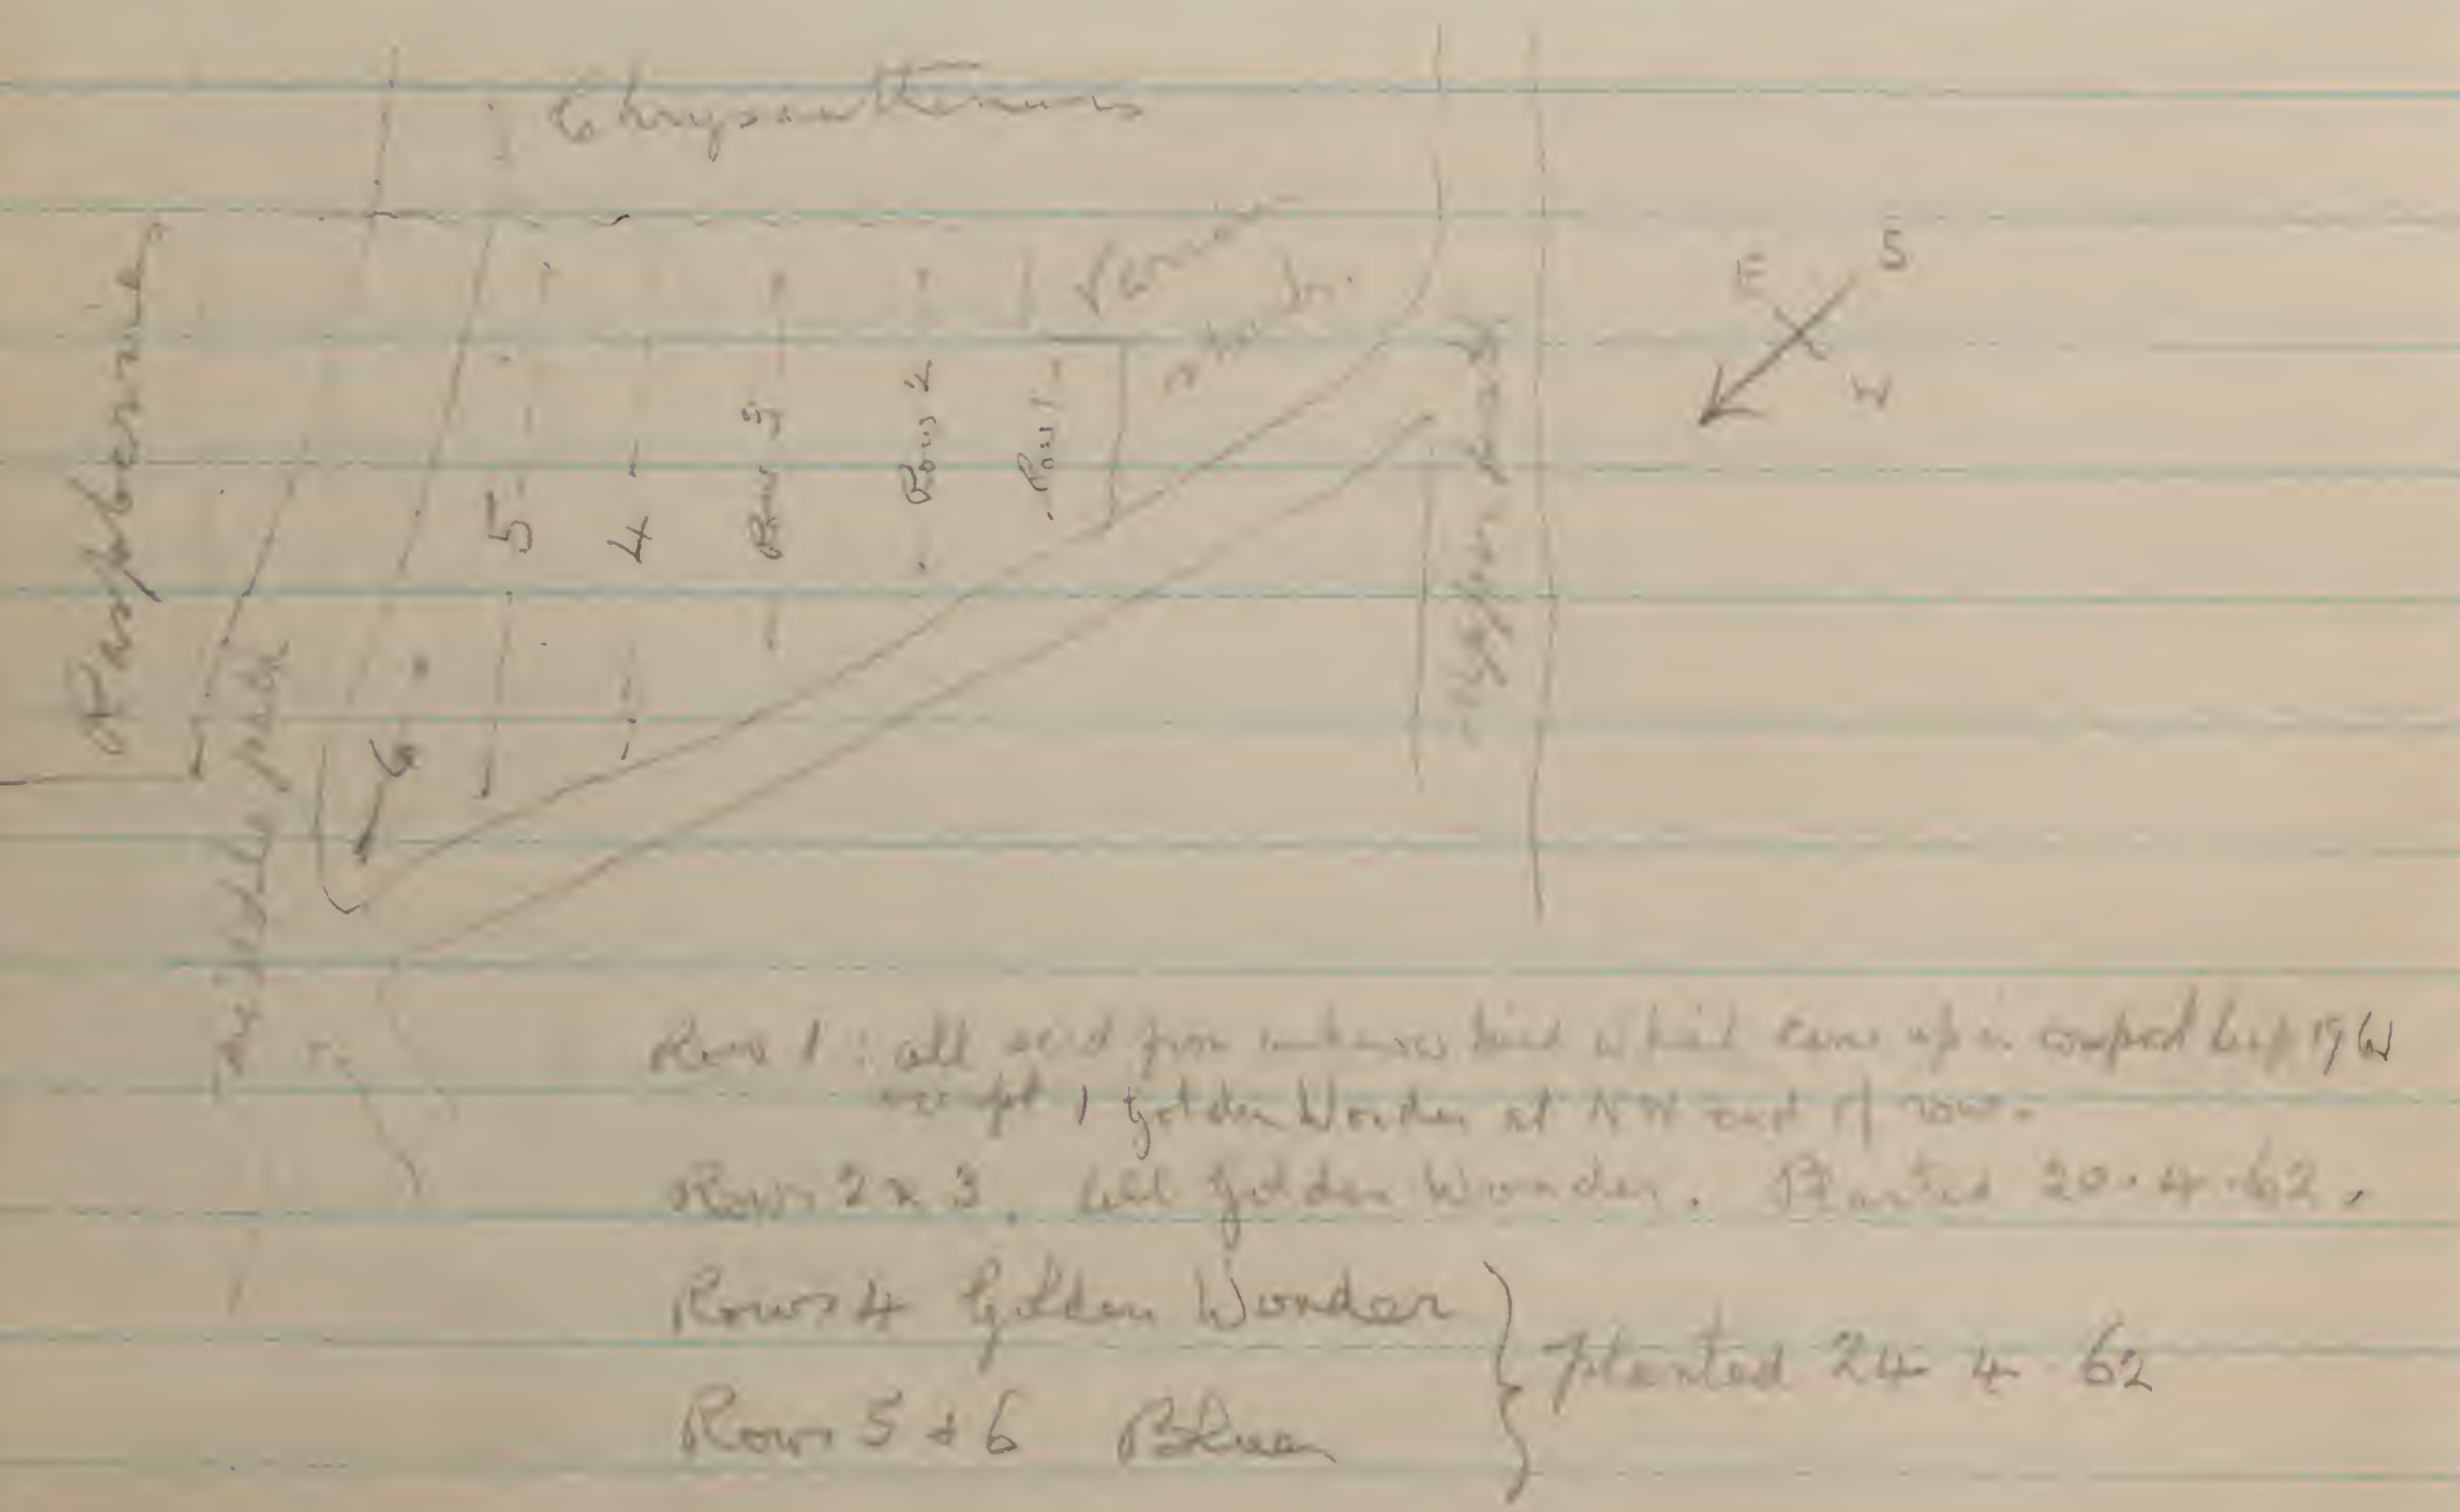 Chrysanthemums
Raspberries
Middle path
Upper path
E S
W
Row 1
Row 2
Row 3
4
5
6
Row 1 : all seed from unknown kind which came up in compost heap 1961
except 1 Golden Wonder at NW end of row.
Rows 2 & 3. All Golden Wonder. Planted 20.4.62.
Rows 4 Golden Wonder
Rows 5 & 6 Blue
Planted 24 4 62